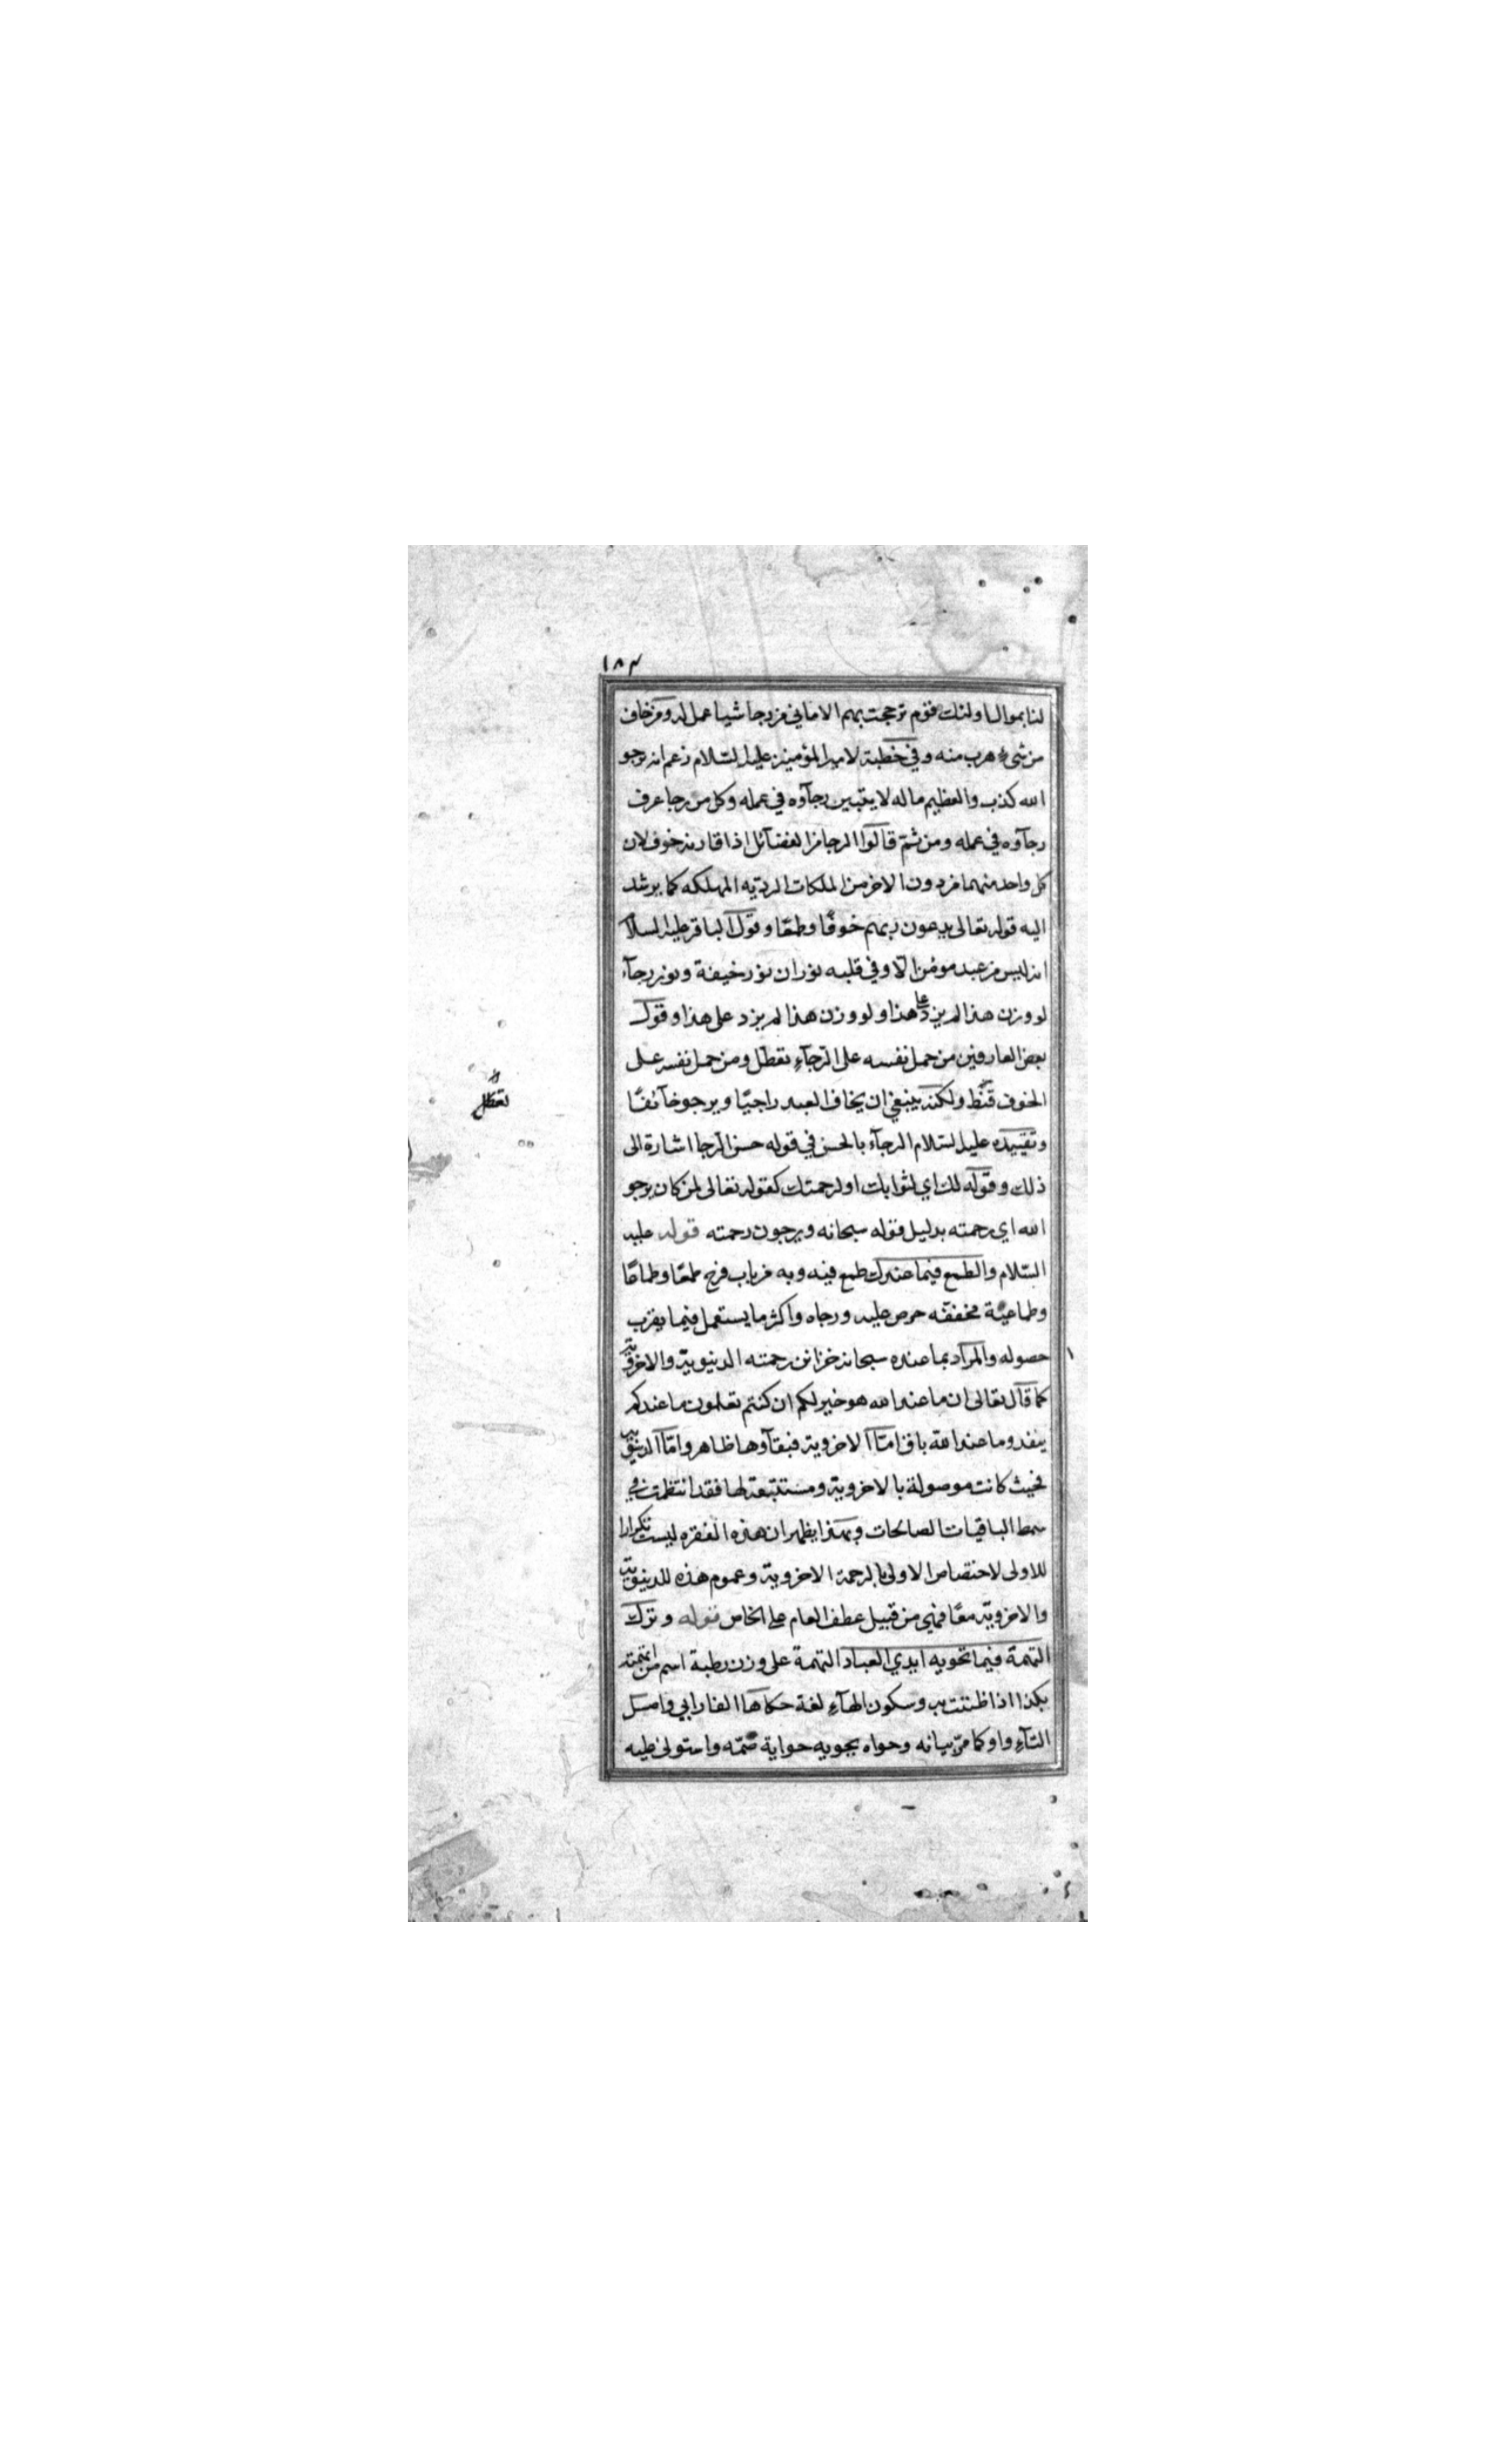 ١٨٣
لنا بموال اولئك قوم ترجحت بهم الاماني من رجا شيا عمل له ومن خاف
من شيء هرب منه وفي خطبة لامير المؤمنين عليه السّلام زعم انه يرجو
الله كذب والعظيم ماله لا يتبين رجآؤه في عمله وكل من رجا عرف
رجآوه في عمله ومن ثمّ قالوا الرجا من الفضآئل اذا قارنه خوف لان
كل واحد منهما من دون الاخر من الملكات الرديه المهلكه كما يرشد
اليه قوله تعالى يدعون ربهم خوفًا وطمعًا وقول الباقر عليه السلا
انه ليس من عبد مومن الّا وفي قلبه نوران نور خيفة ونور رجآء
لو وزن هذا لم يزد على هذا ولو وزن هذا لم يزد على هذا وقول
بعض العارفين من حمل نفسه على الرّجآءِ تعطّل ومن حمل نفسه على
الخوف قنّط ولكنه ينبغي ان يخاف العبد راجيًا ويرجو خآئفًا
وتقييده عليه السّلام الرجآء بالحسن في قوله حسن الرّجا اشارة الى
ذلك وقوله لك اي لثوابك او لرحمتك كقوله تعالى لمن كان يرجو
الله اي رحمته بدليل قوله سبحانه ويرجون رحمته قوله عليه
السّلام والطمع فيما عندك طمع فيه وبه من باب فرح طمعًا وطماعًا
وطماعية مخففة حرص عليه ورجاه واكثر ما يستعمل فيما يقرب
حصوله والمراد بما عنده سبحانه خزائن رحمته الدنيويّة والاخرويّة
كما قال تعالى ان ما عند الله هو خير لكم ان كنتم تعلمون ما عندكم
ينفد وما عند الله باق امّا الاخروية فبقآوها ظاهر وامّا الدنيويّة
فحيث كانت موصولة بالاخروية ومستتبعة لها فقد انتظمت في
سمط الباقيات الصالحات وبهذا يظهر ان هذه الفقره ليست تكرارا
للاولى لاختصاص الاولى بالرحمة الاخروية وعموم هذه للدنيويّة
والاخرويّة معًا فهي من قبيل عطف العام على الخاص قوله وترك
التهمة فيما تحويه ايدي العباد التهمة على وزن رطبة اسم من اتهمته
بكذا اذا ظننت به وسكون الهآءِ لغة حكاها الفارابي واصل
التآءِ واو كما مرّ بيانه وحواه يحويه حواية ضمّه واستولى عليه
تعطّل